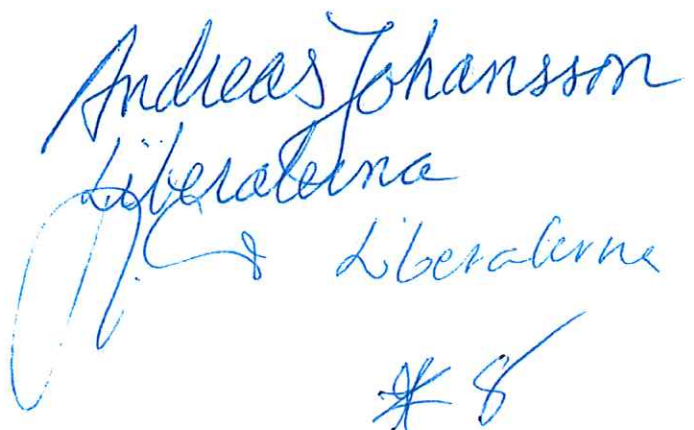 Andreas Johansson
Liberalerna
Liberalerna
* 8